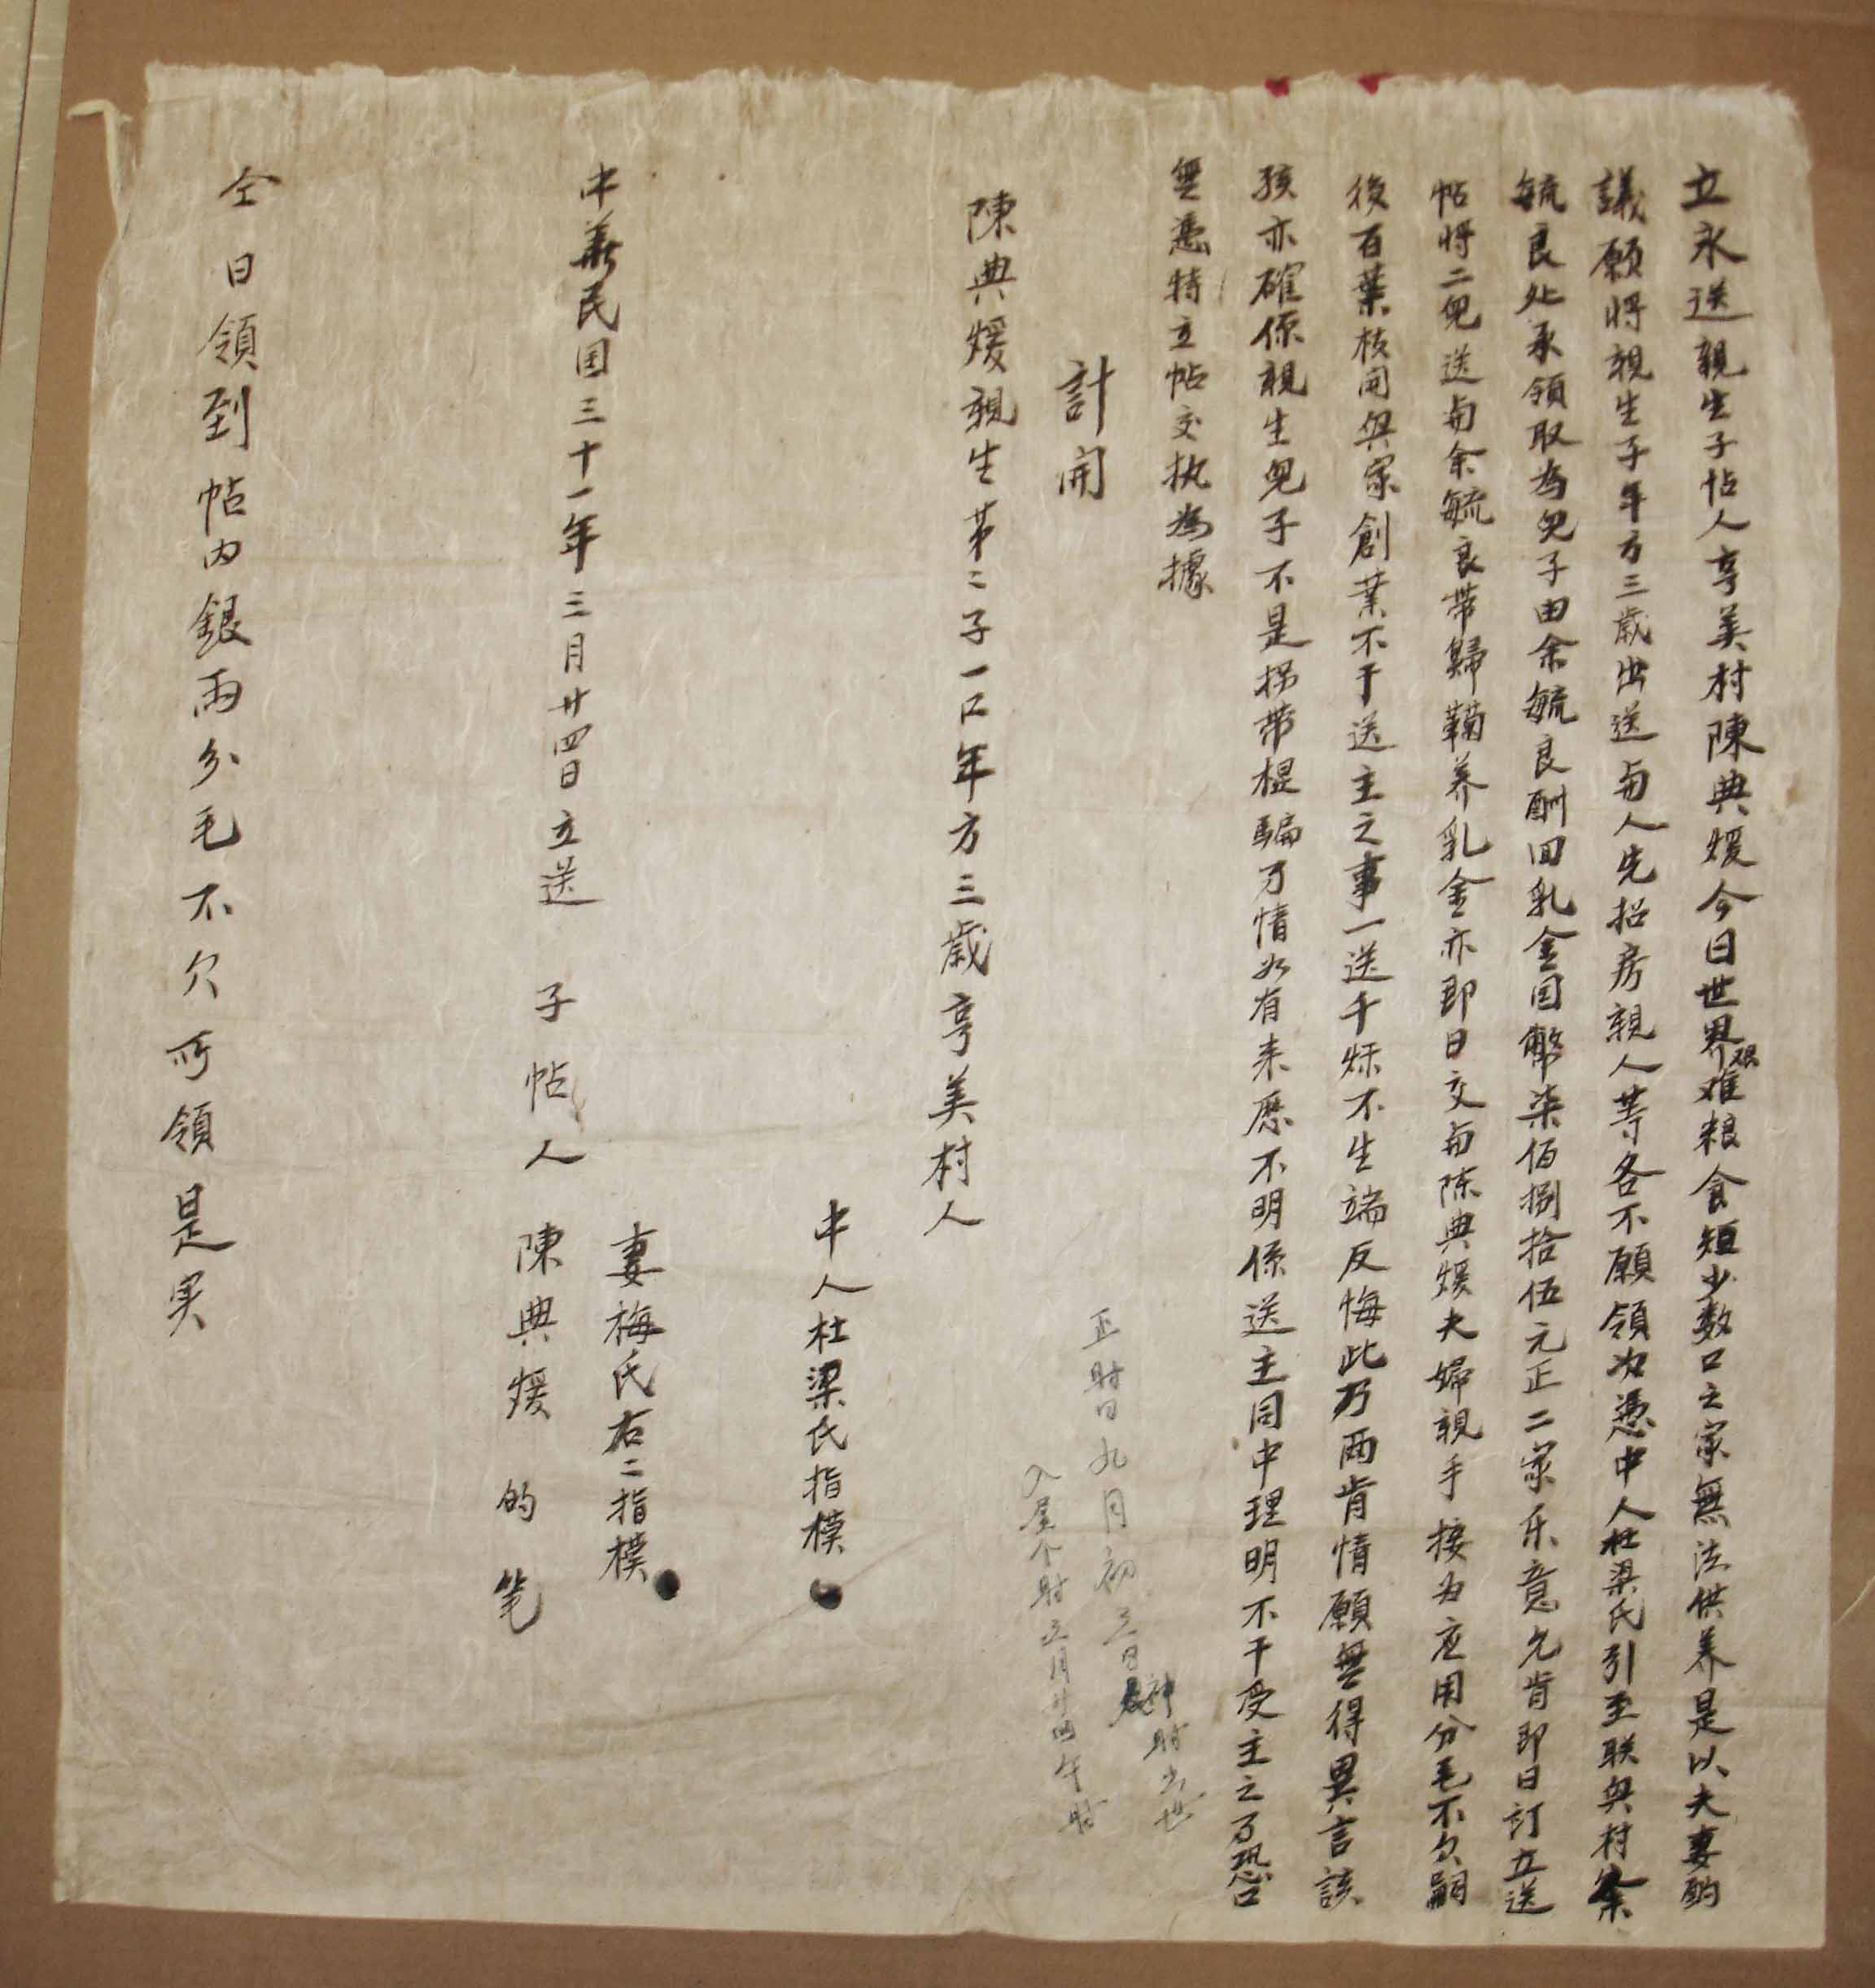 立永送親生子帖人享美村陳典煖今日世界艰难粮食短少数口之家無法供养是以夫妻酌
議願将親生子年方三歲出送与人先招房親人等各不願領次憑中人杜梁氏引至联興村余
毓良处承領取為兒子由余毓良酬回乳金国幣柒佰捌拾伍元正二家乐意允肯即日訂立送
帖将二兒送与余毓良带歸鞠养乳金亦即日交与陈典煖夫婦親手接为应用分毛不欠嗣
後百葉枝開興家創業不干送主之事一送千妥不生端反悔此乃两肯情願無得異言該
孩亦確係親生兒子不是拐带棍騙才情如有来歷不明係送主同中理明不干受主之事恐口
無憑特立帖交执為據
計開
陳典煖親生苐二子一口年方三歲享美村人
正時日九月初三日辰時出世
入屋个時三月廿四午時
中人杜梁氏指模
中華民国三十一年三月廿四日立送子帖人
妻梅氏右二指模
陳典煖的笔
仝日領到帖内銀両分毛不欠所領是实